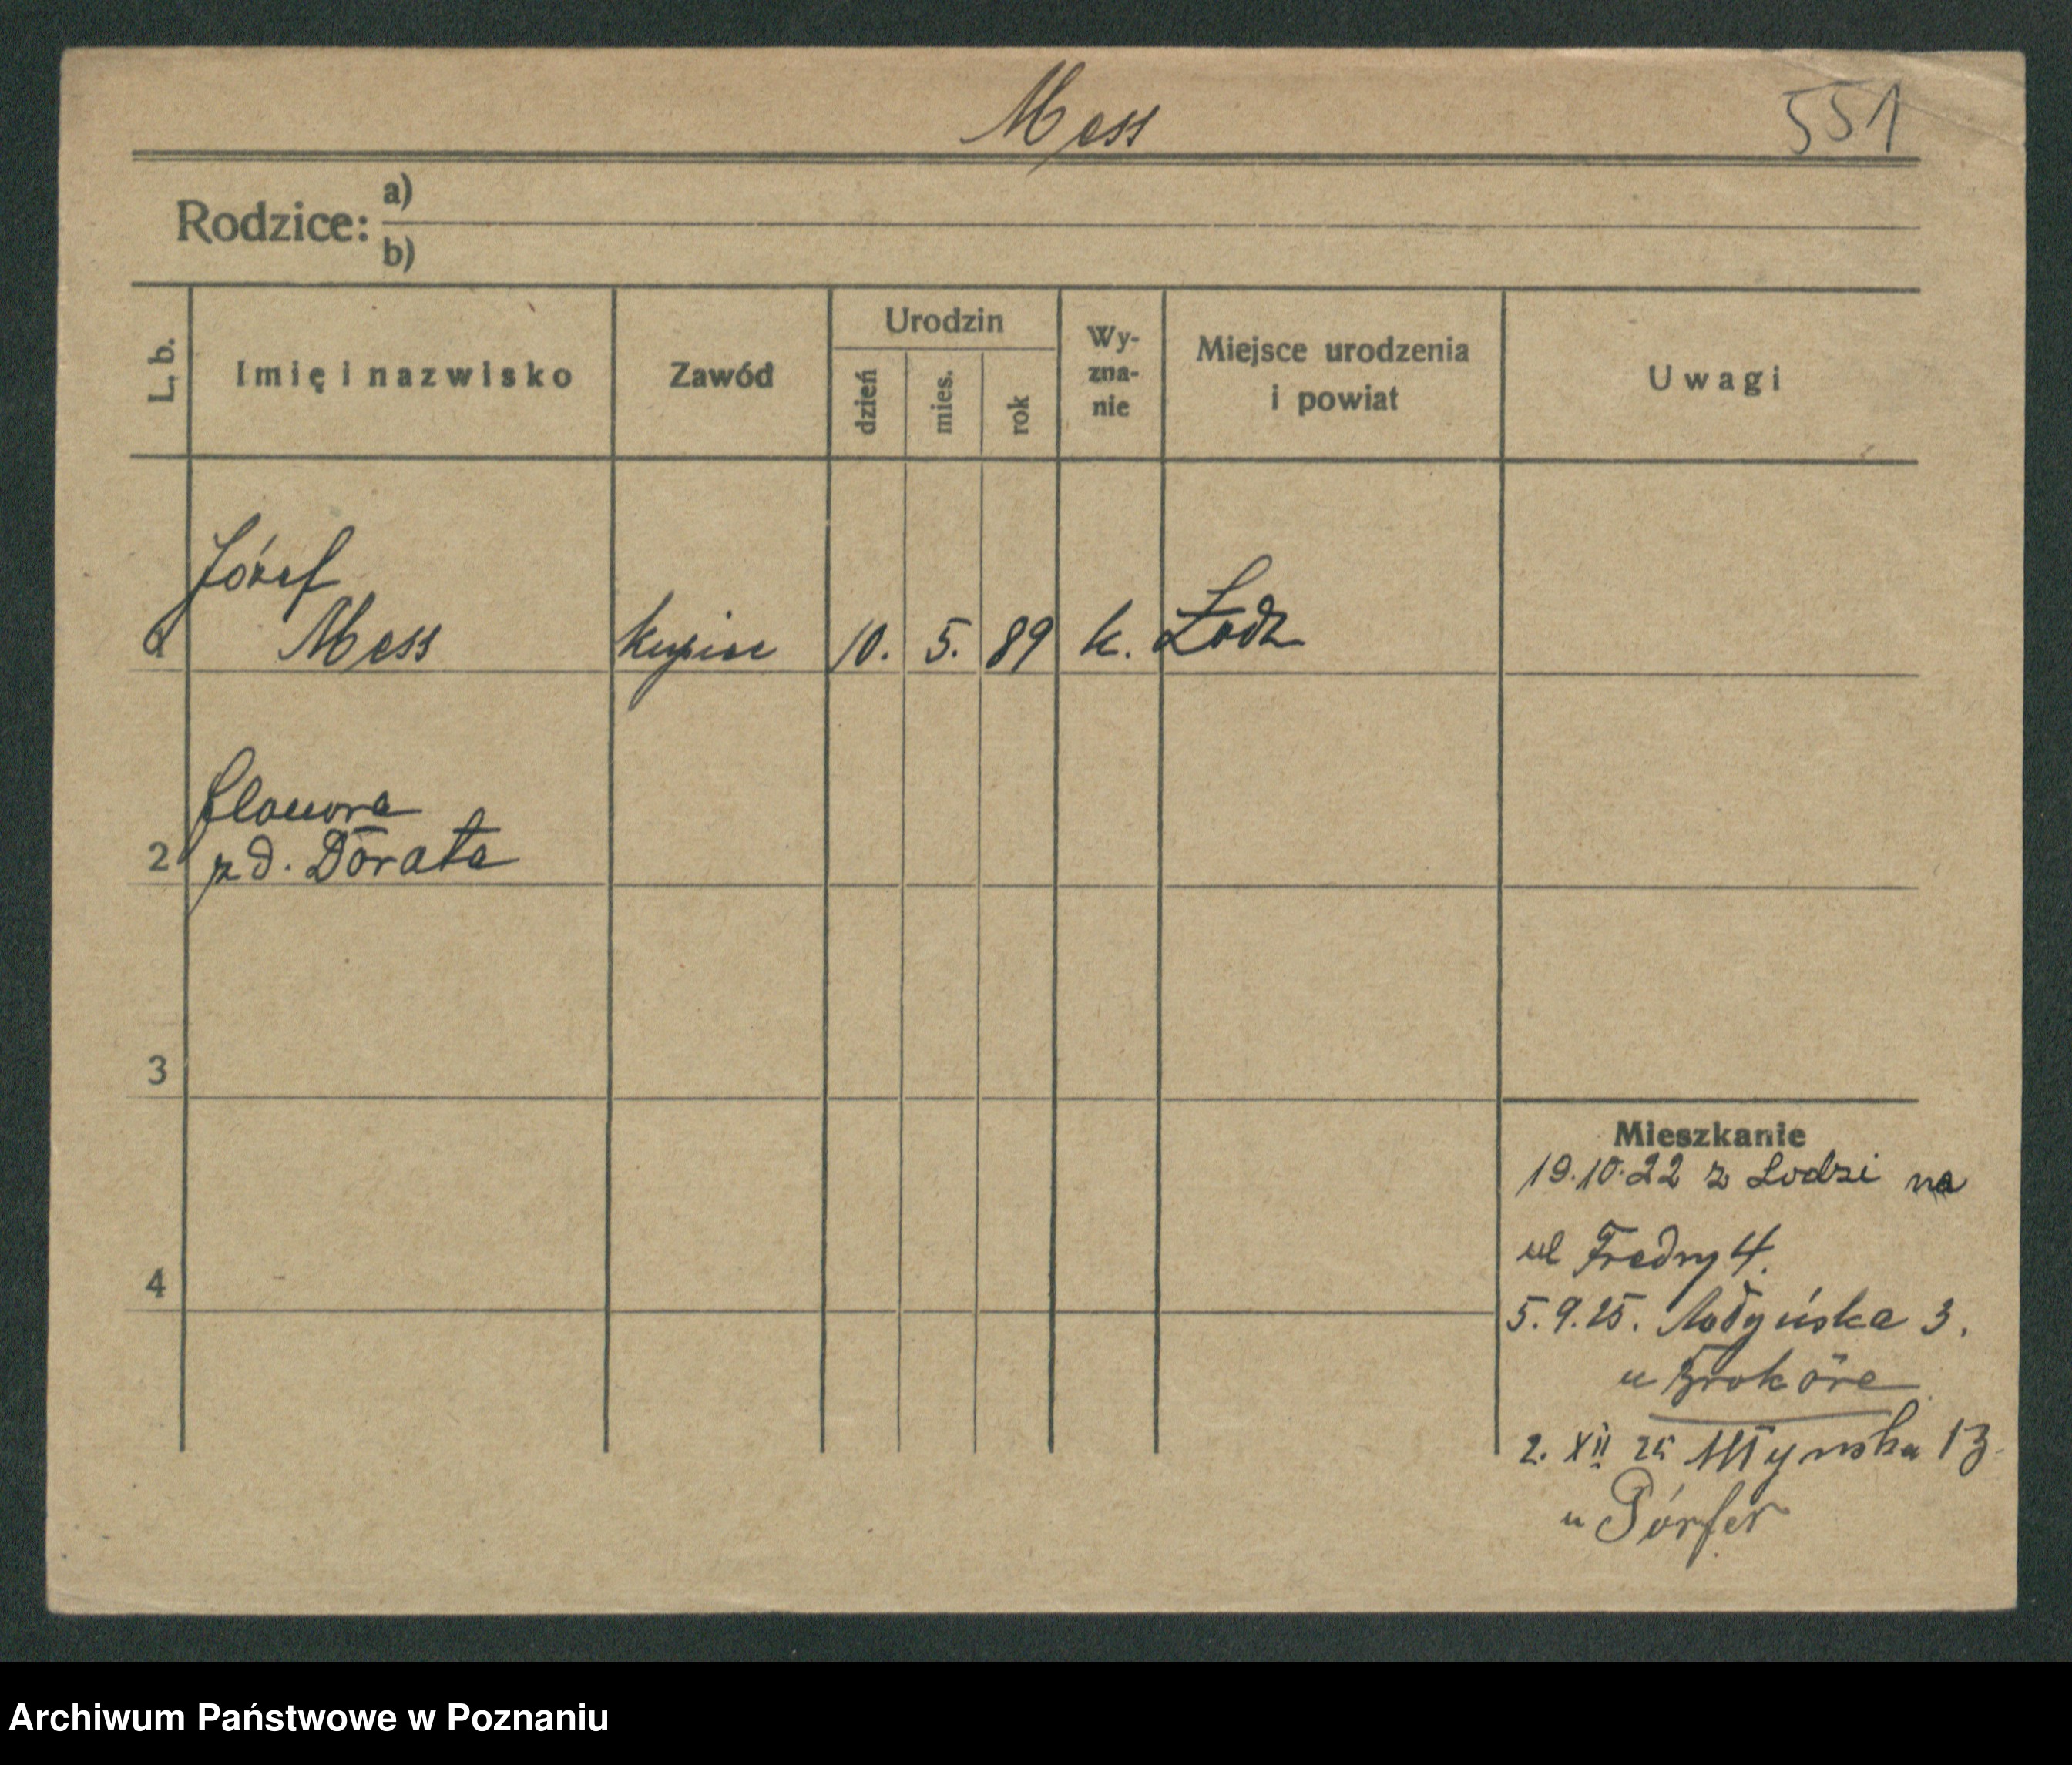 Mess
551
Rodzice: a)
b)
L. b.
Imię i nazwisko
Zawód
Urodzin
dzień
mies.
rok
Wy-
zna-
nie
Miejsce urodzenia
i powiat
Uwagi
Józef
Mess kupiec 10. 5. 89 k. Łodz
2
zd. Dorata
3
4
Mieszkanie
19.10.22 z Lodzi na
ul Fredry 4.
5. 9. 25. 3.
u
2. XII 25 Młynska 13.
u
Archiwum Państwowe w Poznaniu